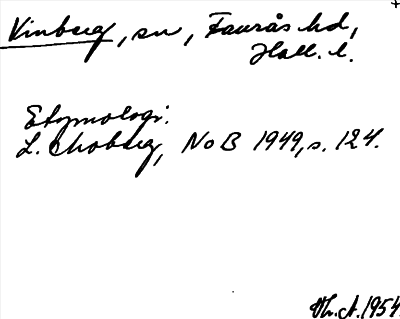 Vinberg, sn, Faurås hd,
Hall. l.
Etymologi:
L. Moberg, NoB 1949, s. 124.
Th. A. 1954